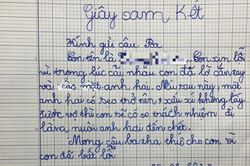 Giấy cam kết
Kính gửi cậu Ba
Con tên là Con xin lỗi
vì trong lúc cãi nhau con đã lỡ cắn tay
và cào mặt anh hai. Nếu sau này, mặt
anh hai có sẹo trở nên xấu xí không lấy
được vợ thì con sẽ có trách nhiệm đi
làm, nuôi anh hai đến chết.
Mong cậu ba tha thứ cho con vì
con đã biết lỗi